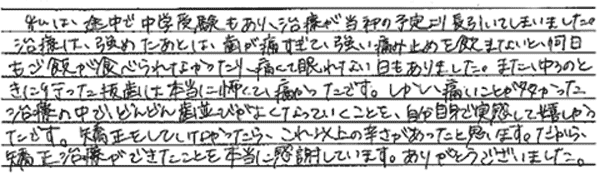 私は、途中で中学受験もあり、治療が当初の予定より長引いてしまいました。
治療は、強めたあとは、歯が痛すぎて、強い痛み止めを飲まないと、何日
もご飯が食べられなかったり、痛くて眠れない日もありました。また、小5のと
きに行った抜歯は本当に怖くて、痛かったです。しかし、痛いことが多かった
治療の中で、どんどん歯並びがよくなっていくことを、自分自身で実感して嬉しかっ
たです。矯正をしていなかったら、これ以上の辛さがあったと思います。だから、
矯正治療ができたことを本当に感謝しています。ありがとうございました。